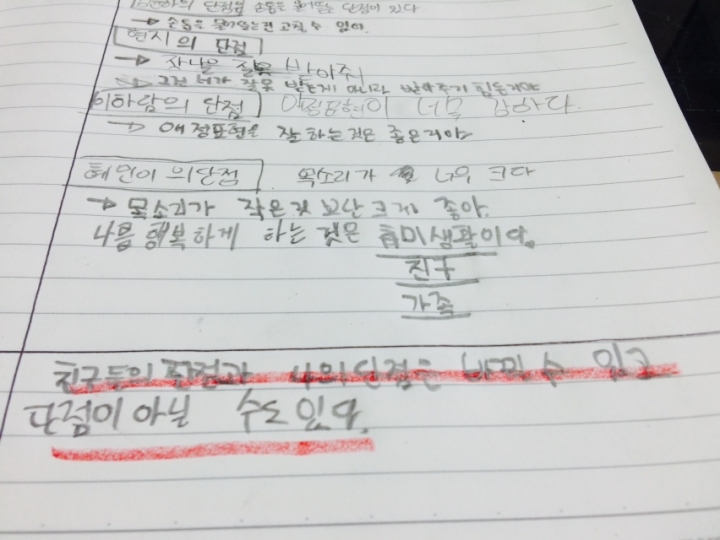 단점은 손톱을 물어뜯는 단점이 있다
→ 손톱을 물어뜯는건 고칠 수 있어.
현시의 단점
→ 장난을 잘 받아줘
→ 그건 네가 잘 받는게 아니라 받아주기 힘든거야
이하람의 단점 애정표현이 너무 심하다.
→ 애정표현을 잘 하는 것은 좋은거야
혜인이의 단점 목소리가 너무 크다
→ 목소리가 작은것 보단 크게 좋아.
나를 행복하게 하는 것은 취미생활이다.
친구
가족
친구들의 단점과 나의 단점은 바뀔 수 있고
단점이 아닐 수도 있다.